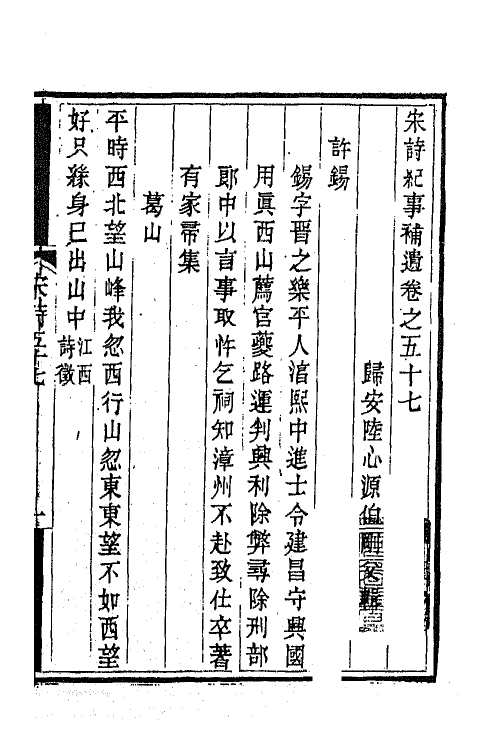 宋詩紀事補遺卷之五十七
歸安陸心源伯
許錫
錫字晋之樂平人淯熙中進士令建昌守興國
用眞西山薦官夔路運判興利除弊尋除刑部
郎中以言事取忤乞祠知漳州不赴致仕卒著
有家帚集
葛山
平時西北望山峰我忽西行山忽東東望不如西望
好只緣身已出山中江西詩徵